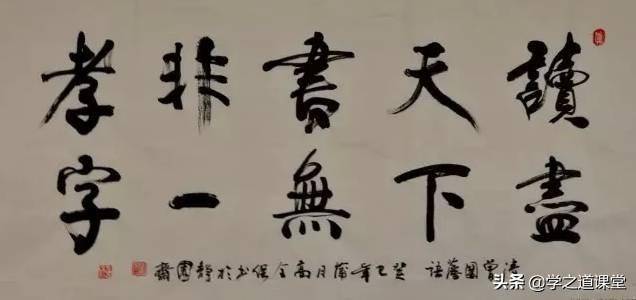 讀盡
天下
書無
非一
孝字
清曾國藩語 癸巳年蒲月高全保书於靜園齋
头条 @学之道课堂